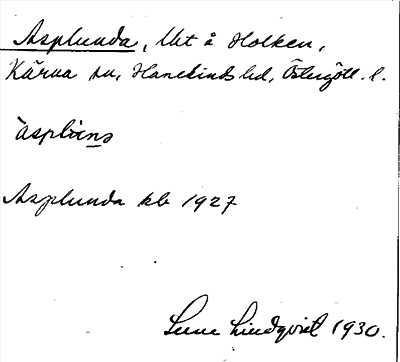 Asplunda, Mt å Holken,
Kärna sn, Hanekinds hd, Östergötl. l.
àsplùns
Asplunda kb 1927
Sune Lindqvist 1930.